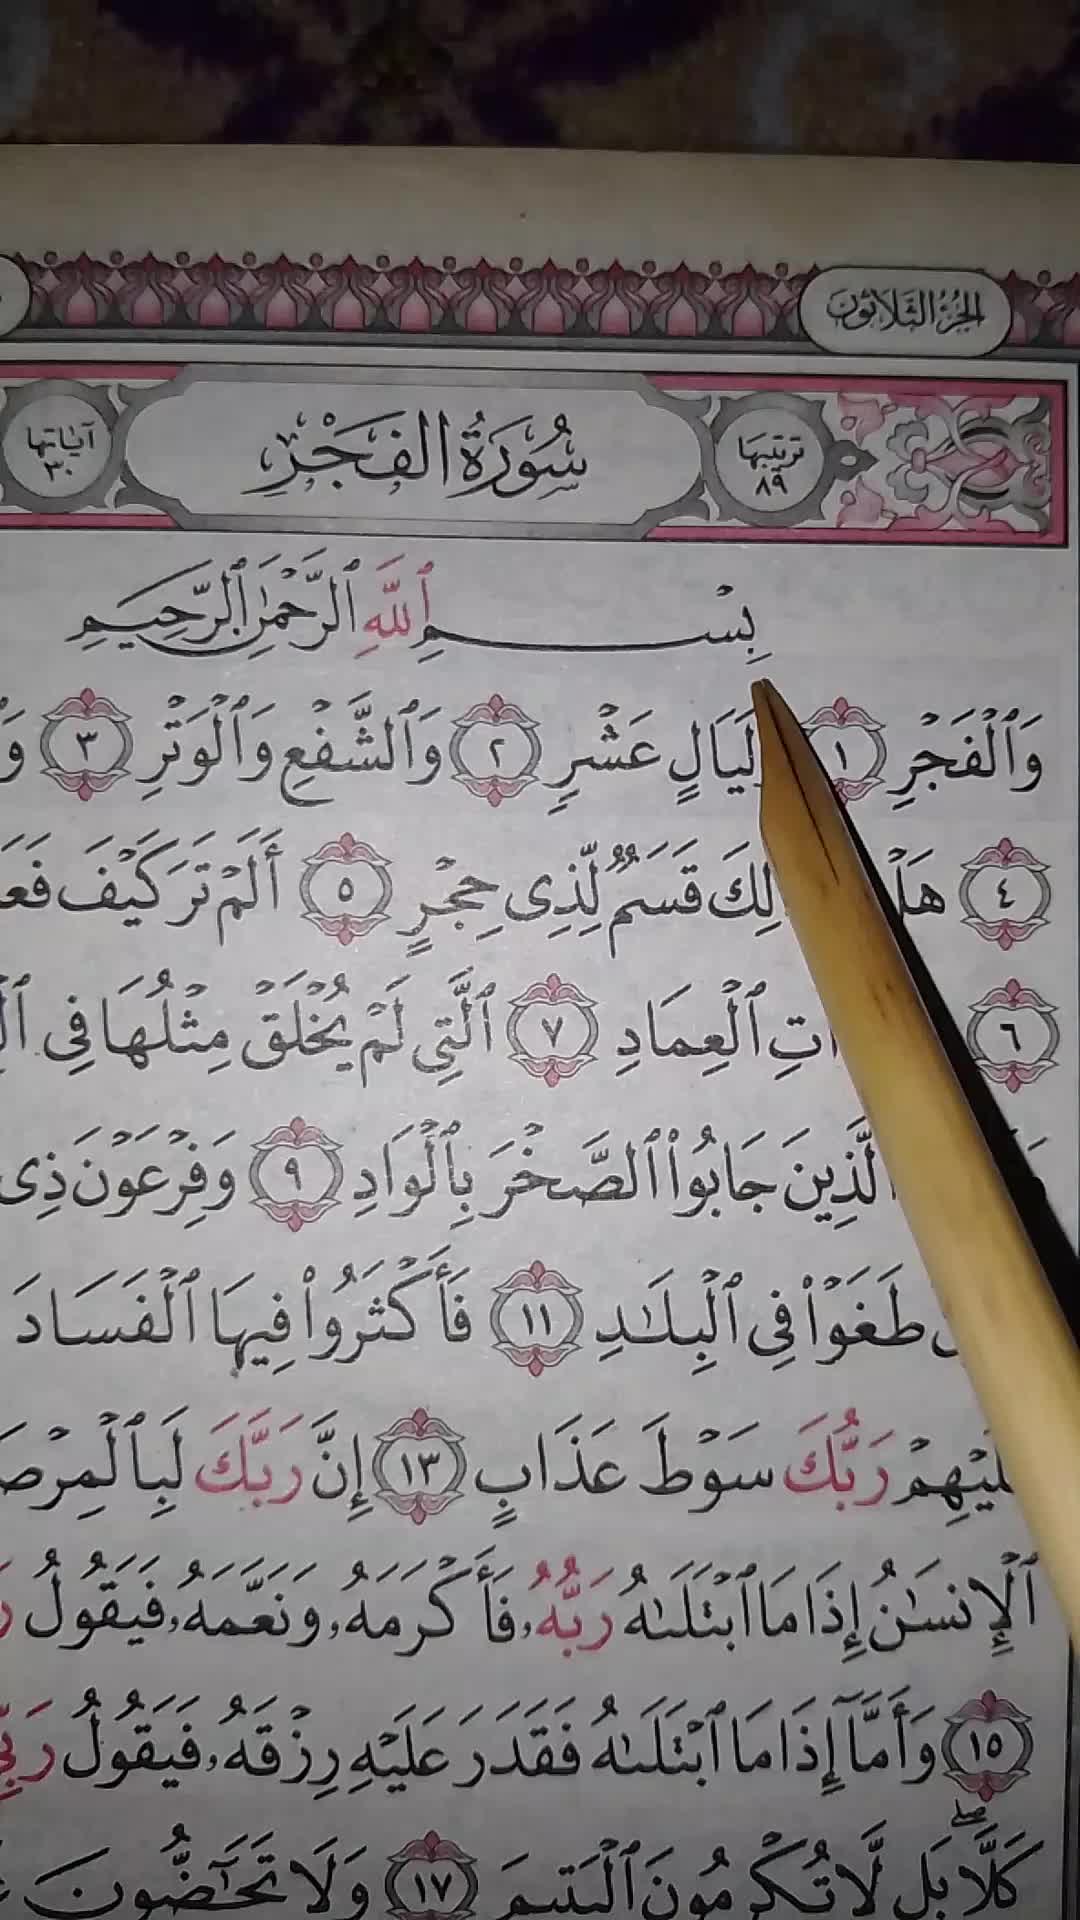 الجزء الثلاثون
ترتيبها ٨٩
سُورَةُ الفَجْرِ
آياتها ٣٠
بِسْمِ ٱللَّهِ ٱلرَّحْمَٰنِ ٱلرَّحِيمِ
وَٱلْفَجْرِ ١ لَيَالٍ عَشْرٍ ٢ وَٱلشَّفْعِ وَٱلْوَتْرِ ٣
٤ هَلْ لِكَ قَسَمٌ لِّذِى حِجْرٍ ٥ أَلَمْ تَرَ كَيْفَ
٦ ٱلْعِمَادِ ٧ ٱلَّتِى لَمْ يُخْلَقْ مِثْلُهَا فِى
ٱلَّذِينَ جَابُوا۟ ٱلصَّخْرَ بِٱلْوَادِ ٩ وَفِرْعَوْنَ ذِى
طَغَوْا۟ فِى ٱلْبِلَٰدِ ١١ فَأَكْثَرُوا۟ فِيهَا ٱلْفَسَادَ
عَلَيْهِمْ رَبُّكَ سَوْطَ عَذَابٍ ١٣ إِنَّ رَبَّكَ
ٱلْإِنسَٰنُ إِذَا مَا ٱبْتَلَىٰهُ رَبُّهُۥ فَأَكْرَمَهُۥ وَنَعَّمَهُۥ فَيَقُولُ
١٥ وَأَمَّآ إِذَا مَا ٱبْتَلَىٰهُ فَقَدَرَ عَلَيْهِ رِزْقَهُۥ فَيَقُولُ رَبِّى
كَلَّا ۖ بَل لَّا تُكْرِمُونَ ٱلْيَتِيمَ ١٧ وَلَا تَحَٰٓضُّونَ